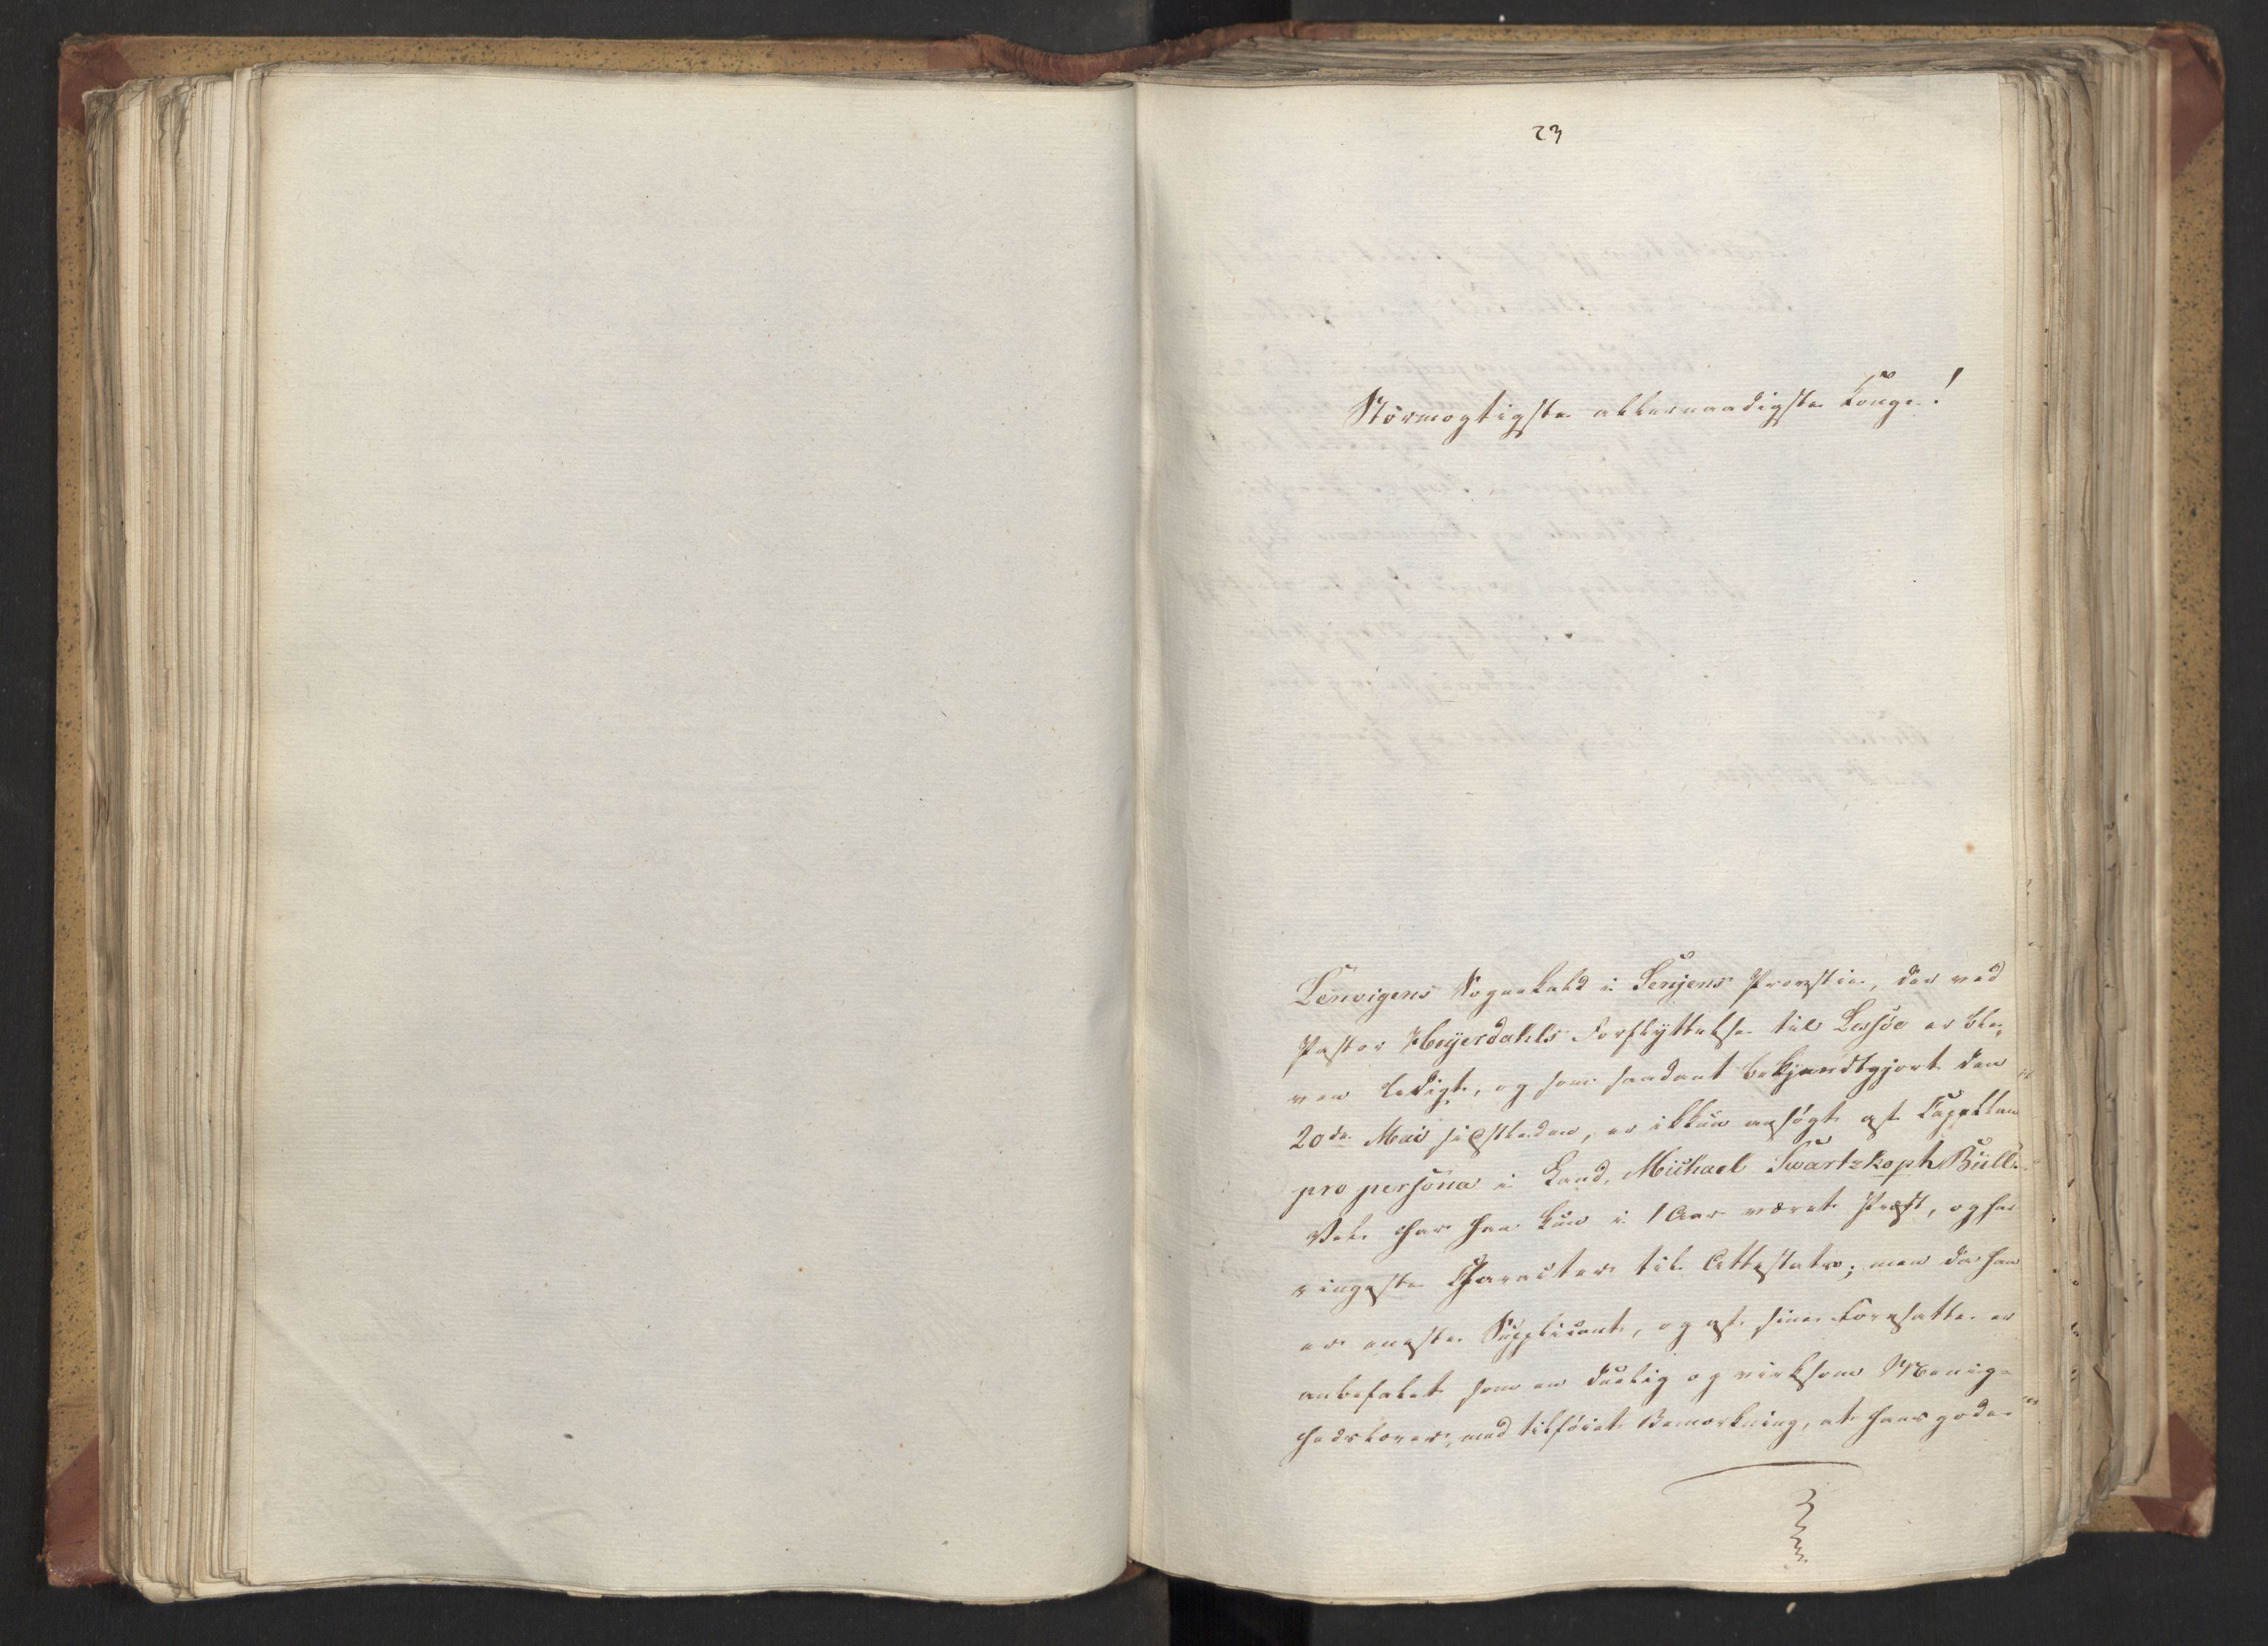 23
Stormægtigste allernaadigste Konge!
Lenvigens Sognekald i Senjens Provstie, der ved
Pastor Heyerdahls Forflyttelse til Lessøe er ble-
ven ledigt, og som saadant bekjendtgjort den
20de Mai sidstleden, er ikkun ansøgt af Capellan
pro persona i Land, Michael Swartzkoph Bull.
Vel har han kun i 1 Aar været Præst, og har
ringeste Character til Attestats; men da han
er eneste Supplicant, og af sine Foresatte er
anbefalet som en duelig og virksom Menig-
hedslærer, med tilføiet Bemærkning, at hans gode